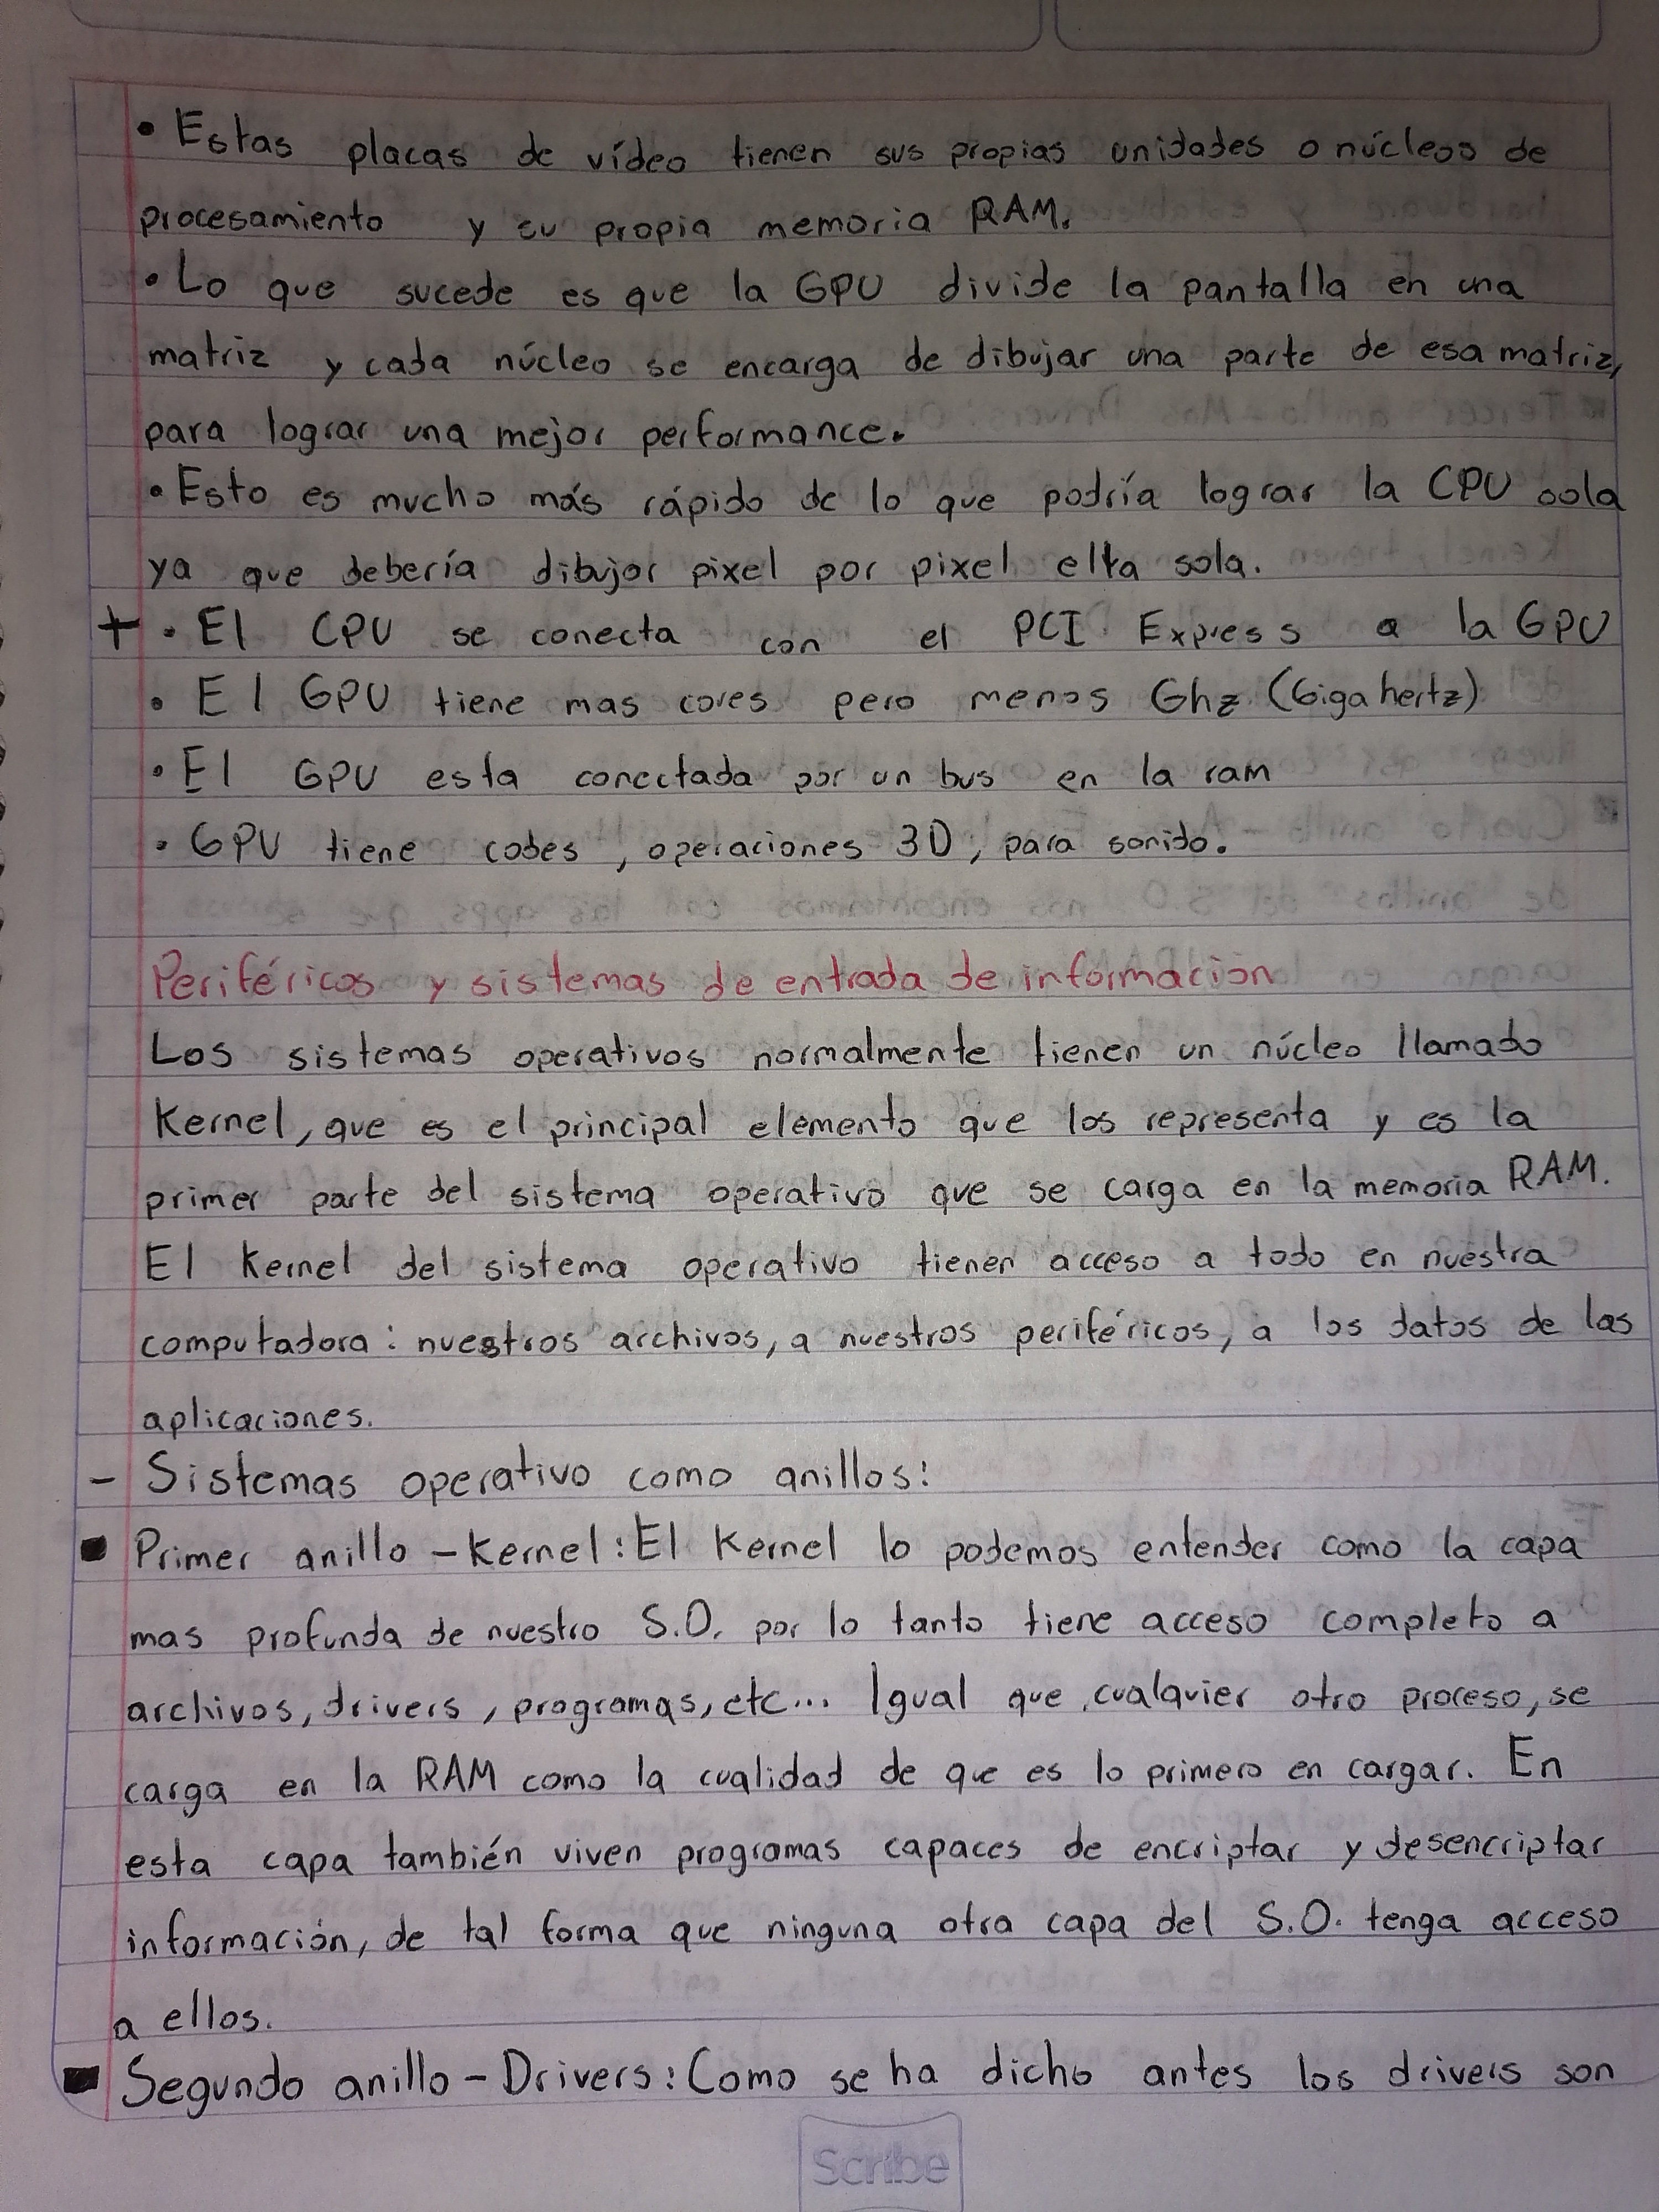 • Estas placas de vídeo tienen sus propias unidades o núcleos de
procesamiento y su propia memoria RAM.
• Lo que sucede es que la GPU divide la pantalla en una
matriz y cada núcleo se encarga de dibujar una parte de esa matriz,
para lograr una mejor performance.
• Esto es mucho más rápido de lo que podría lograr la CPU sola
ya que debería dibujar pixel por pixel ella sola.
+ • El CPU se conecta con el PCI Express a la GPU
• El GPU tiene mas cores pero menos Ghz (Gigahertz)
• El GPU esta conectada por un bus en la ram
• GPU tiene codes, operaciones 3D, para sonido.
Periféricos y sistemas de entrada de información
Los sistemas operativos normalmente tienen un núcleo llamado
Kernel, que es el principal elemento que los representa y es la
primer parte del sistema operativo que se carga en la memoria RAM.
El Kernel del sistema operativo tienen acceso a todo en nuestra
computadora: nuestros archivos, a nuestros periféricos, a los datos de las
aplicaciones.
- Sistemas operativo como anillos:
▪ Primer anillo - Kernel: El Kernel lo podemos entender como la capa
mas profunda de nuestro S.O. por lo tanto tiene acceso completo a
archivos, drivers, programas, etc... Igual que cualquier otro proceso, se
carga en la RAM como la cualidad de que es lo primero en cargar. En
esta capa también viven programas capaces de encriptar y desencriptar
información, de tal forma que ninguna otra capa del S.O. tenga acceso
a ellos.
▪ Segundo anillo - Drivers: Como se ha dicho antes los drivers son
Scribe